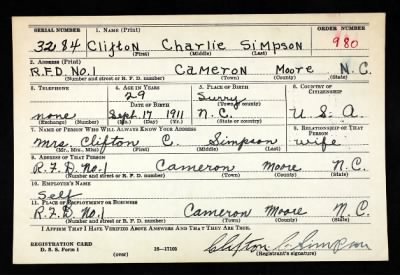 SERIAL NUMBER 1. NAME (Print) ORDER NUMBER
3284 Clifton Charlie Simpson 980
(First) (Middle) (Last)
2. ADDRESS (Print)
R.F.D. No.1 Cameron Moore N.C.
(Number and street or R. F. D. number) (Town) (County) (State)
3. TELEPHONE 4. AGE IN YEARS 5. PLACE OF BIRTH 6. COUNTRY OF CITIZENSHIP
29 Surry
DATE OF BIRTH (Town or county)
none Sept. 17 1911 N.C. U.S.A.
(Exchange) (Number) (Mo.) (Day) (Yr.) (State or country)
7. NAME OF PERSON WHO WILL ALWAYS KNOW YOUR ADDRESS 8. RELATIONSHIP OF THAT PERSON
Mrs. Clifton C. Simpson Wife
(Mr., Mrs., Miss) (First) (Middle) (Last)
9. ADDRESS OF THAT PERSON
R.F.D. No.1 Cameron Moore N.C.
(Number and street or R. F. D. number) (Town) (County) (State)
10. EMPLOYER'S NAME
Self
11. PLACE OF EMPLOYMENT OR BUSINESS
R.F.D. No.1 Cameron Moore N.C.
(Number and street or R. F. D. number) (Town) (County) (State)
I AFFIRM THAT I HAVE VERIFIED ABOVE ANSWERS AND THAT THEY ARE TRUE.
REGISTRATION CARD
D. S. S. Form 1 16—17105 Clifton C. Simpson
(over) (Registrant's signature)